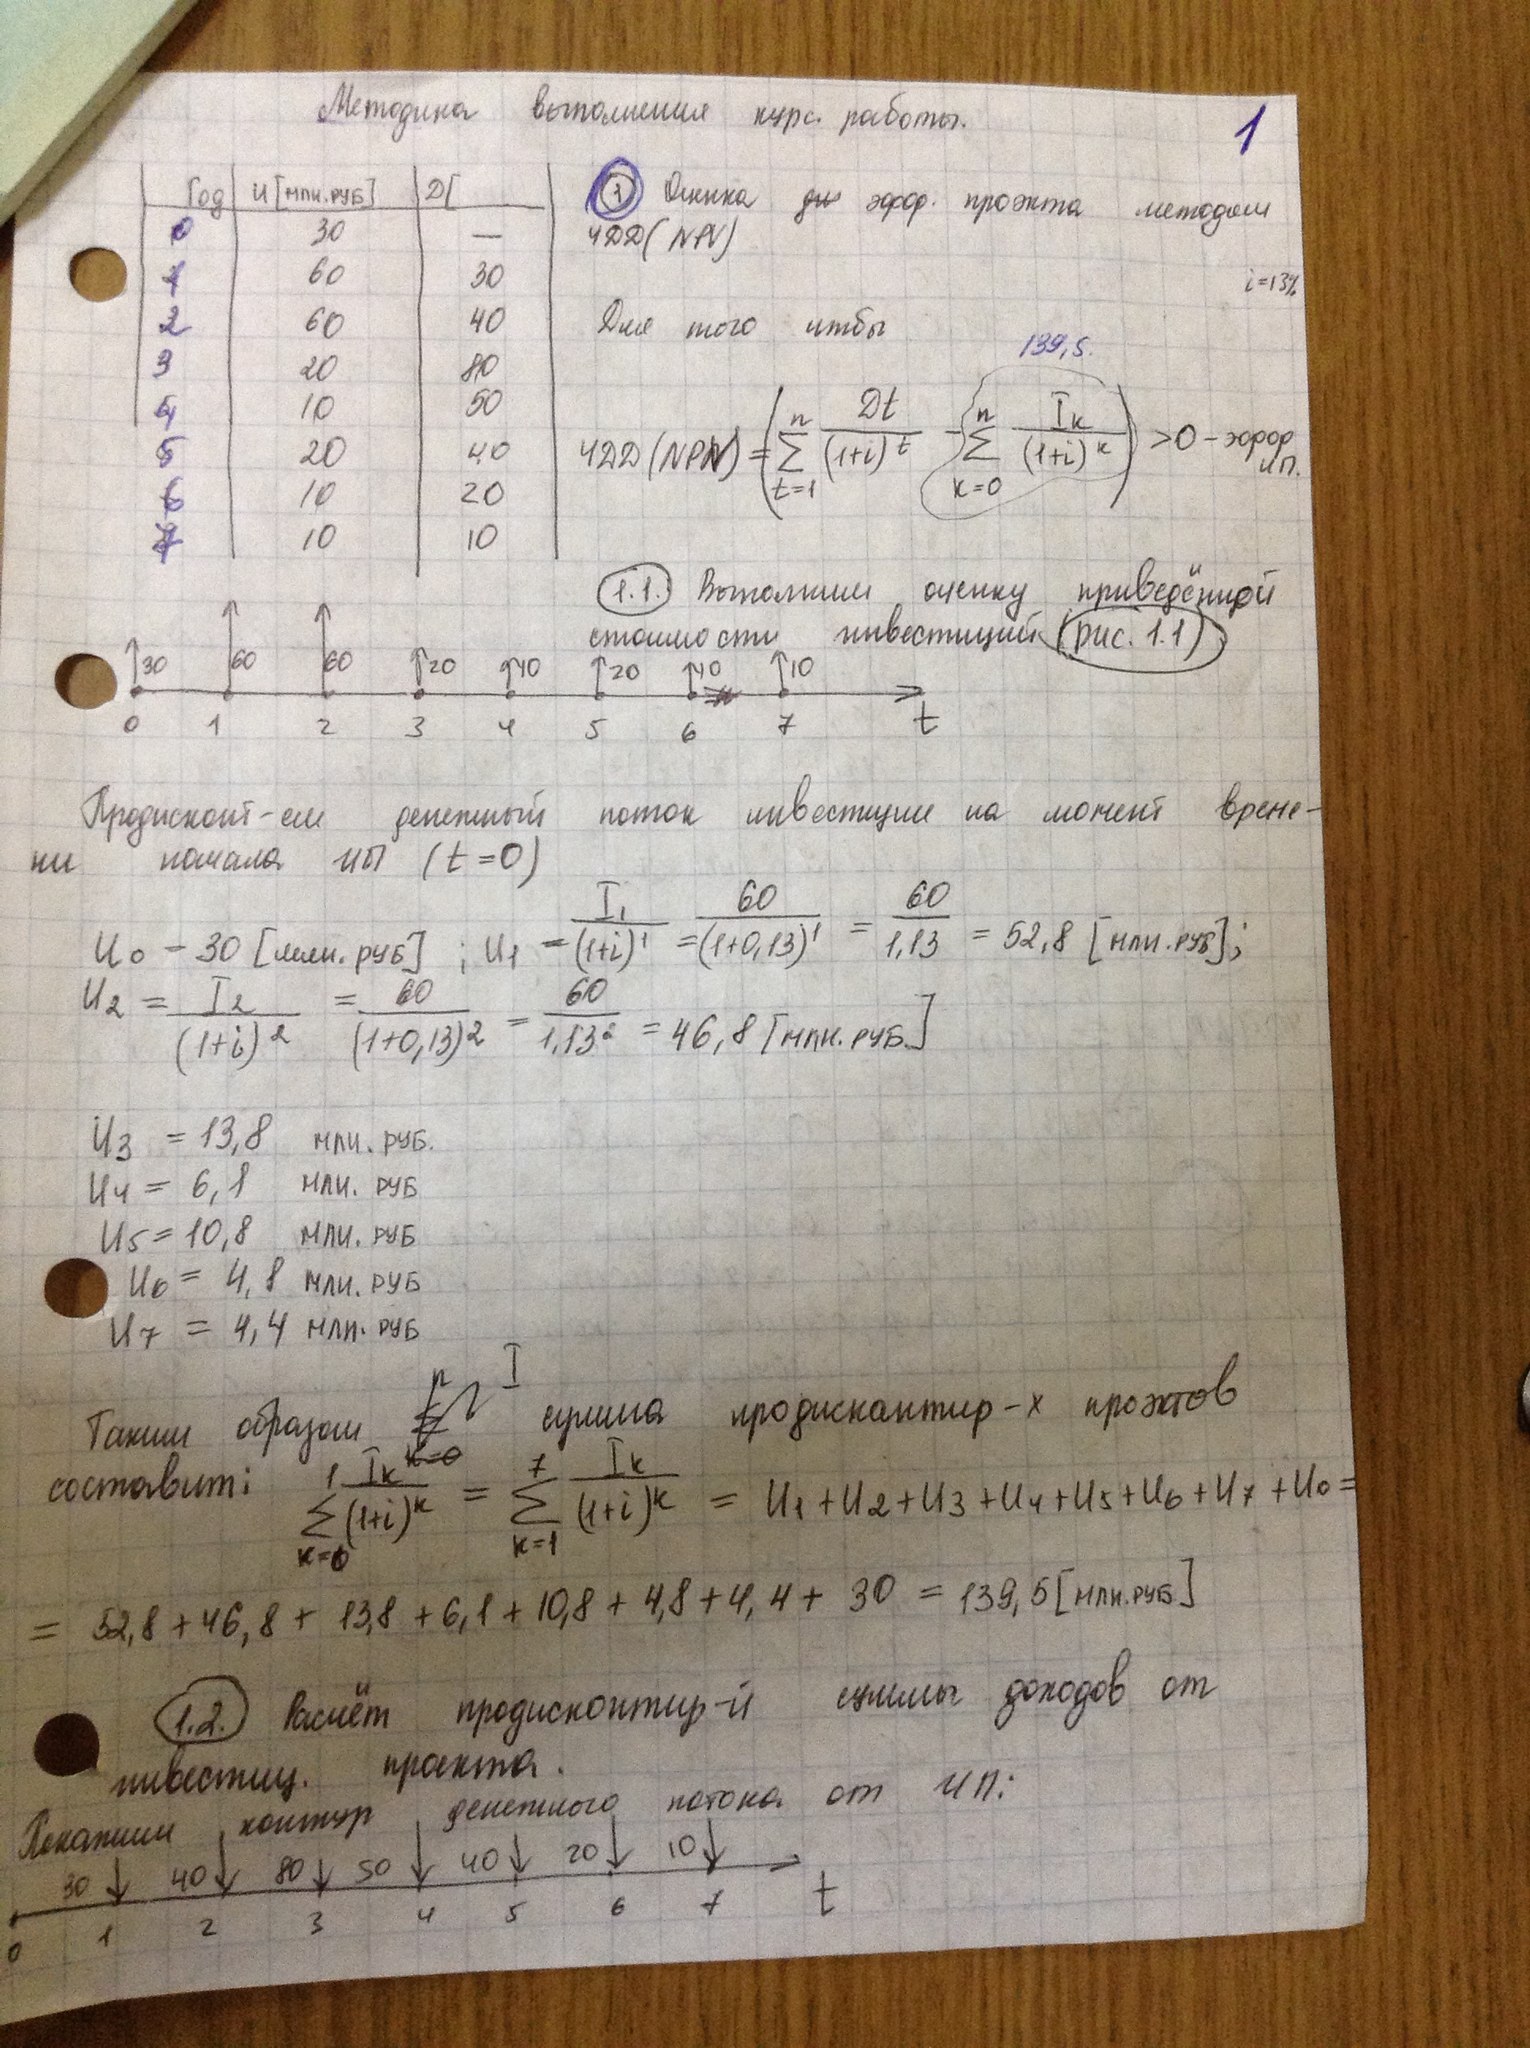 Методика выполнения курс. работы.
1
Год И [млн.руб] Д[
0 30 —
1 60 30
2 60 40
3 20 80
4 10 50
5 20 40
6 10 20
7 10 10
1 Оценка эфф. проэкта методом
ЧДД (NPV)
i=13%
Для того чтбы
139,5.
ЧДД (NPV) = (∑ n t=1 Dt/(1+i)^t - ∑ n k=0 Iк/(1+i)^k) >0 - эффф
ип.
1.1. Выполним оценку приведённой
стоимости инвестиций (рис. 1.1)
30 60 60 20 10 20 10 10
0 1 2 3 4 5 6 7 t
Продисконт-ем денежный поток инвестиции на момент време-
ни начала ИП (t=0)
И0 - 30 [млн. руб] ; И1 = I1/(1+i)^1 = 60/(1+0,13)^1 = 60/1,13 = 52,8 [млн.руб];
И2 = I2/(1+i)^2 = 60/(1+0,13)^2 = 60/1,13^2 = 46,8 [млн.руб.]
И3 = 13,8 млн.руб.
И4 = 6,1 млн. руб
И5 = 10,8 млн. руб
И6 = 4,8 млн. руб
И7 = 4,4 млн. руб
I
Таким образом сумма продискантир-х проэктов
составит: ∑ 1 k=0 Iк/(1+i)^k = ∑ 7 k=1 Iк/(1+i)^k = И1+И2+И3+И4+И5+И6+И7+И0 =
= 52,8+46,8+13,8+6,1+10,8+4,8+4,4+30 = 139,5 [млн.руб]
1.2. Расчёт продисконтир-й суммы доходов от
инвестиц. проэкта.
Покажим контур денежного потока от ИП:
30 40 80 50 40 20 10
0 1 2 3 4 5 6 7 t